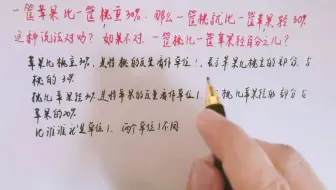 一筐苹果比一筐桃重30%，那么一筐桃就比一筐苹果轻30%
这种说法对吗？如果不对，一筐桃比一筐苹果轻百分之几？
苹果比桃重30%，是把桃的质量看作单位1，苹果比桃重的部分占
桃的30%
桃比苹果轻30%，是把苹果的质量看作单位1，桃比苹果轻的部分占
苹果的30%
比谁谁就是单位1，两个单位1不同